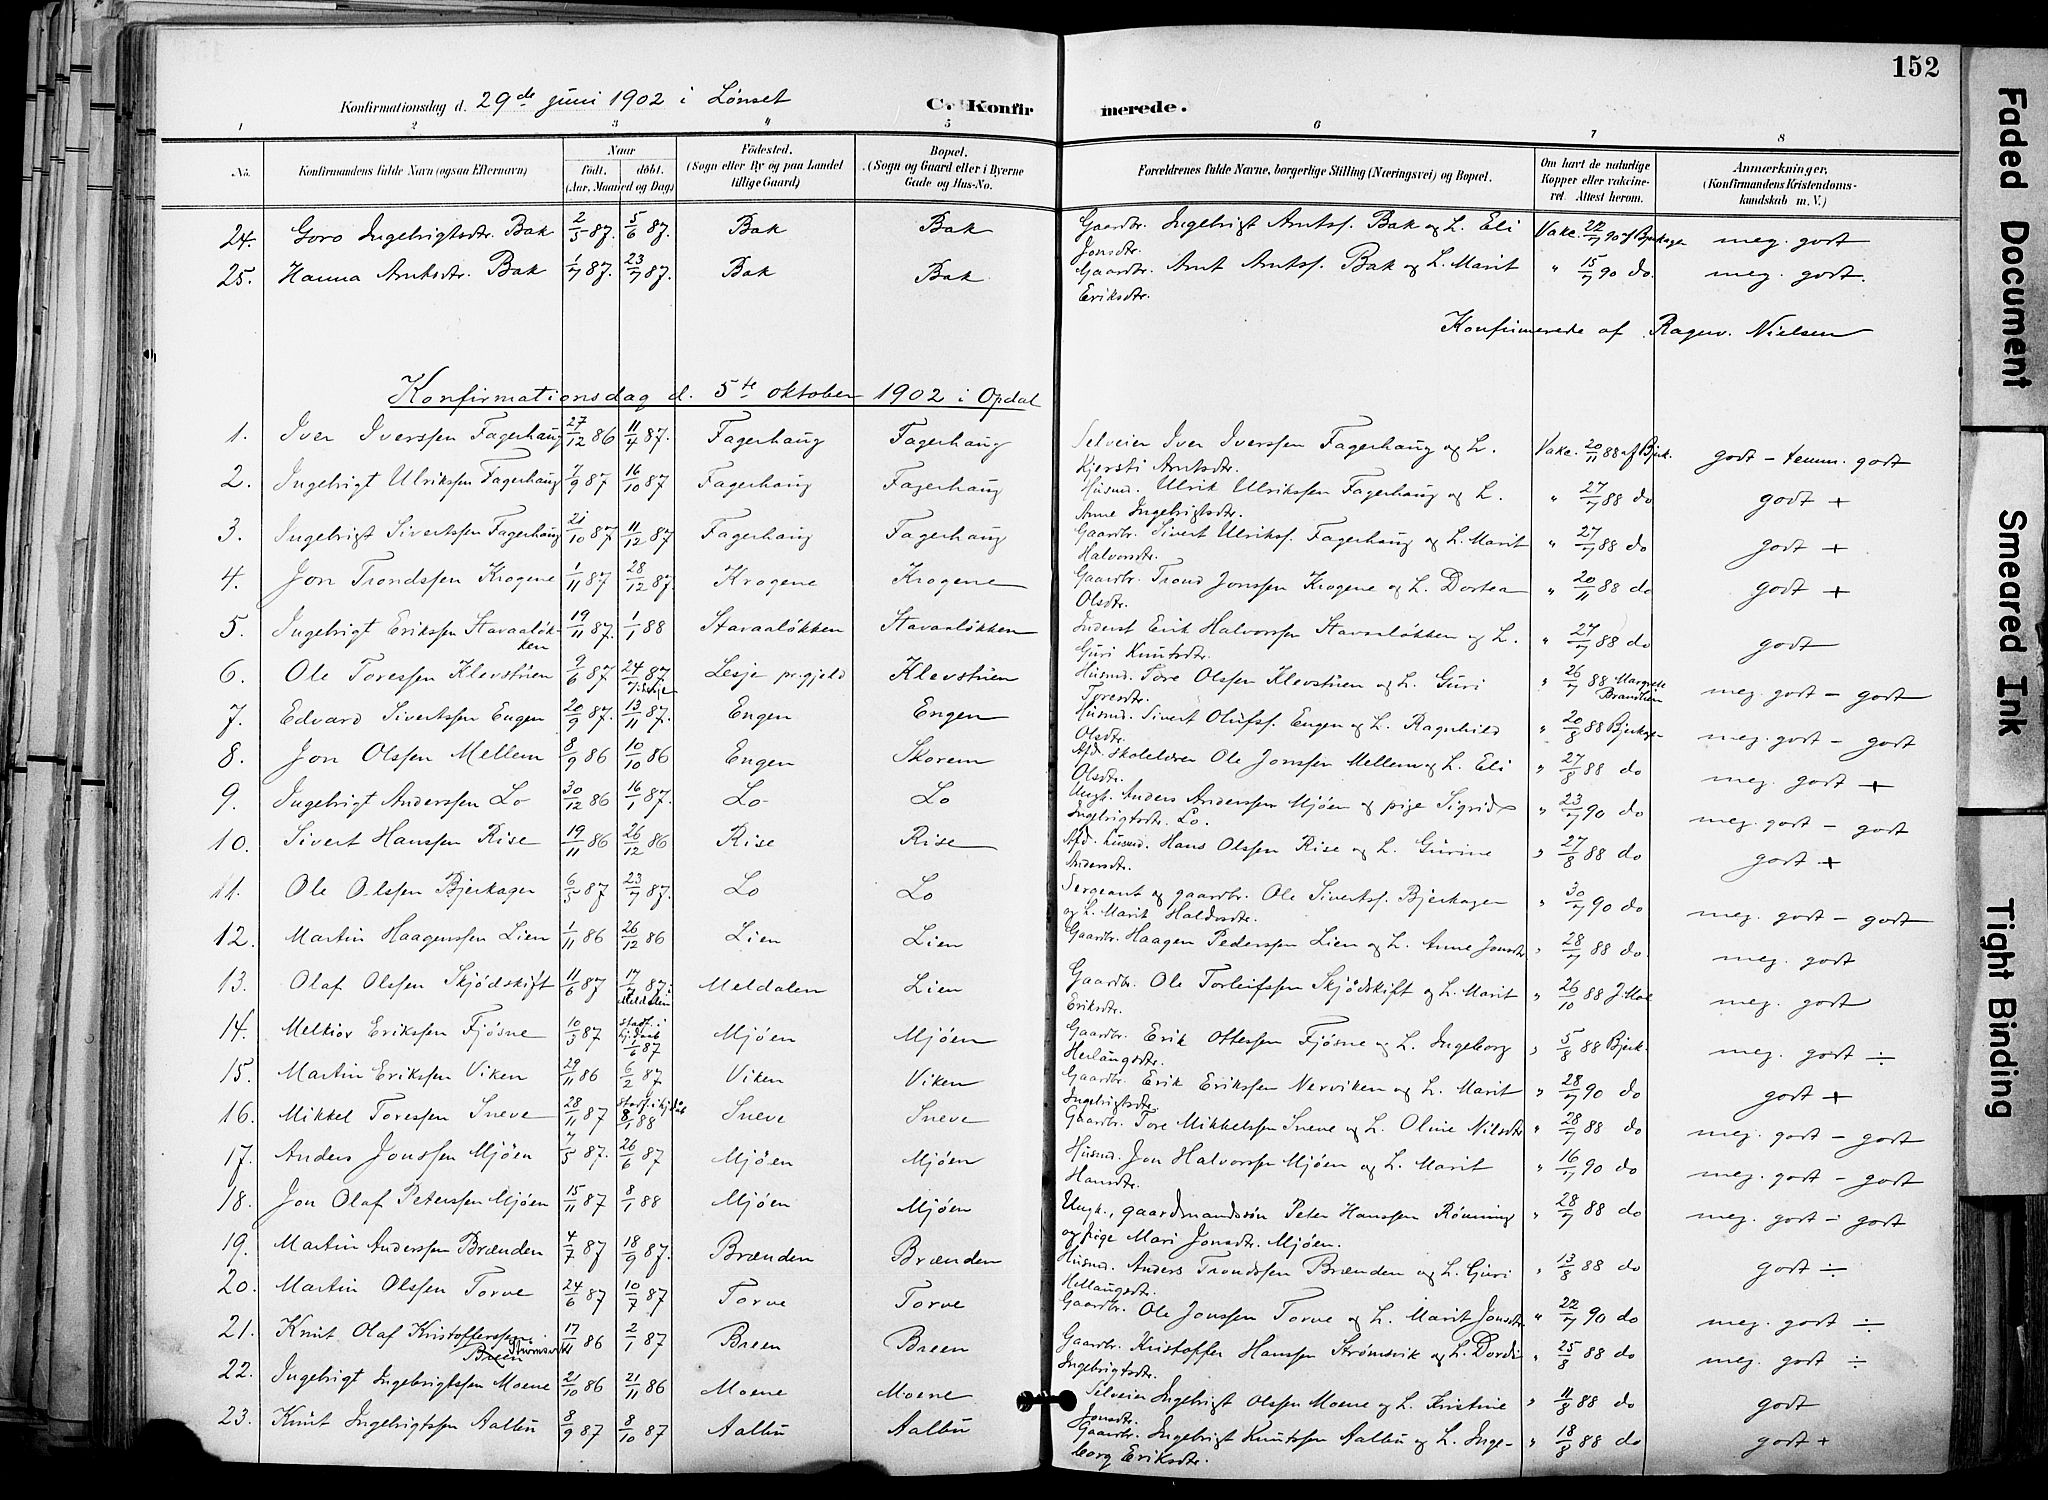 152
Konfirmationsdag d. 29de juni 1902 i Lønset C. Konfirmerede.
1 2 3 4 5 6 7 8
No. Konfirmandens fulde Navn (ogsaa Efternavn) Naar Født. døbt. (Aar, Maaned og Dag) Fødested. (Sogn eller By og paa Landet tillige Gaard) Bopæl. (Sogn og Gaard eller i Byerne Gade og Hus-No. Forældrenes fulde Navne, borgerlige Stilling (Næringsvei) og Bopæl. Om havt de naturlige Kopper eller vakcineret. Attest herom. Anmærkninger, (Konfirmandens Kristendomskundskab m. V.)
24. Goro Ingebrigtsdtr. Bak 2/5 87. 5/6 87. Bak Bak Gaardbr. Ingebrigt Arntsf. Bak og L. Eli Jonsdtr. Vakc. 22/7 90 af Bjerkager meg. godt
25. Hanna Arntsdtr. Bak 1/7 87. 23/7 87. Bak Bak Gaardbr. Arnt Arntsf. Bak og L. Marit Eriksdtr. " 15/7 90 do. meg. godt.
Konfirmerede af Ragnv. Nielsen
Konfirmationsdag d. 5te oktober 1902 i Opdal
1. Iver Iverssen Fagerhaug 27/12 86 11/4 87. Fagerhaug Fagerhaug Selveier Iver Iverssen Fagerhaug og L. Kjersti Arntsdtr. Vakc. 20/11 88 af Bjerk. godt - temm. godt
2. Ingebrigt Ulrikssen Fagerhaug 7/9 87 16/10 87 Fagerhaug Fagerhaug Husmd. Ulrik Ulrikssen Fagerhaug og L. Anne Ingebrigtsdtr. " 27/7 88 do godt +
3. Ingebrigt Sivertssen Fagerhaug 21/10 87 11/12 87 Fagerhaug Fagerhaug Gaardbr. Sivert Ulriksf. Fagerhaug og L. Marit Halvorsdtr. " 27/7 88 do godt +
4. Jon Trondssen Krogene 1/11 87 28/12 87. Krogene Krogene Gaardbr. Trond Jonssen Krogene og L. Dortea Olsdtr. " 20/11 88 do godt +
5. Ingebrigt Erikssen Stavaaløkken 19/11 87. 1/1 88 Stavaaløkken Stavaaløkken Inderst Erik Halvorssen Stavaaløkken og L. Guri Knutsdtr. " 27/7 88 do godt
6. Ole Toressen Klevstuen 9/6 87 24/7 87 i Lesje Lesje pr.gjeld Klevstuen Husmd. Tore Olssen Klevstuen og L. Guri Toresdtr. " 26/7 88 Margrete meg. godt - godt
7. Edvard Sivertssen Engen 20/9 87. 13/11 87. Engen Engen Husmd. Sivert Olufsf. Engen og L. Ragnhild Olsdtr. " 20/8 88 Bjerkag- meg. godt - godt
8. Jon Olssen Mellem 8/9 86 10/10 86 Engen Skorem Afd. skolelærer Ole Jonssen Mellem og L. Eli Olsdtr. " 27/8 88 do meg. godt +
9. Ingebrigt Anderssen Lo 30/12 86 16/1 87. Lo Lo Ungk. Anders Anderssen Mjøen og pige Sigrid Ingebrigtsdtr. Lo. " 23/7 90 do meg. godt - godt
10. Sivert Hanssen Rise 19/11 86 26/12 86 Rise Rise Afd. husmd. Hans Olssen Rise og L. Gurine Andersdtr. " 27/8 88 do godt +
11. Ole Olssen Bjerkager 6/5 87 23/7 87. Lo Lo Sergeant og gaardbr. Ole Sivertsf. Bjerkager og L. Marit Haldosdtr. " 30/7 90 do meg. godt - godt
12. Martin Haagenssen Lien 1/11 86 26/12 86 Lien Lien Gaardbr. Haagen Pederssen Lien og L. Anne Jonsdtr " 28/7 88 do. meg. godt
13. Olaf Olssen Skjødskift 11/6 87 17/7 87 i Meldalen Meldalen Lien Gaardbr. Ole Torleifssen Skjødskift og L. Marit Eriksdtr. " 26/10 88 J. Moe meg. godt
14. Melkior Erikssen Fjøsne 10/3 87 stadf. i kj. 1/6 87 Mjøen Mjøen Gaardbr. Erik Ottessen Fjøsne og L. Ingeborg Herlaugsdtr. " 5/8 88 Bjerk- meg. godt ÷
15. Martin Erikssen Viken 29/11 86 6/2 87 Viken Viken Gaardbr. Erik Erikssen Nerviken og L. Marit Ingebrigtsdtr. " 28/7 90 do godt +
16. Mikkel Toressen Sneve 28/11 87 stadf. i kj. 8/1 88 Sneve Sneve Gaardbr. Tore Mikkelssen Sneve og L. Oline Nilsdtr " 28/7 88 do meg. godt - godt
17. Anders Jonssen Mjøen 7/5 87. 26/6 87 Mjøen Mjøen Husmd. Jon Halvorssen Mjøen og L. Marit Hansdtr. " 16/7 90 do meg. godt - godt
18. Jon Olaf Peterssen Mjøen 15/11 87 8/1 88 Mjøen Mjøen Ungk., gaardmandssøn Peter Hanssen Rønning og pige Mari Jonsdtr. Mjøen. " 28/7 88 do meg. godt - godt
19. Martin Anderssen Brænden 4/7 87 18/9 87. Brænden Brænden Husmd. Anders Trondssen Brænden og L. Guri Hellaugsdtr. " 13/8 88 do godt ÷
20. Martin Olssen Torve 24/6 87 10/7 87 Torve Torve Gaardbr. Ole Jonssen Torve og L. Marit Jonsdtr " 22/7 90 do meg. godt ÷
21. Knut Olaf Kristofferssen Breen Strømsvik 17/11 86 2/1 87 Breen Breen Gaardbr. Kristoffer Hanssen Strømsvik og L. Dordi Ingebrigtsdtr. " 25/8 88 do meg. godt ÷
22. Ingebrigt Ingebrigtssen Moene 21/10 86 21/11 86 Moene Moene Selveier Ingebrigt Olssen Moene og L. Kristine Jonsdtr. " 11/8 88 do godt
23. Knut Ingebrigtssen Aalbu 8/9 87 8/10 87 Aalbu Aalbu Gaardbr. Ingebrigt Knutssen Aalbu og L. Ingeborg Eriksdtr. " 18/8 88 do godt +
Faded Document
Smeared Ink
Tight Binding